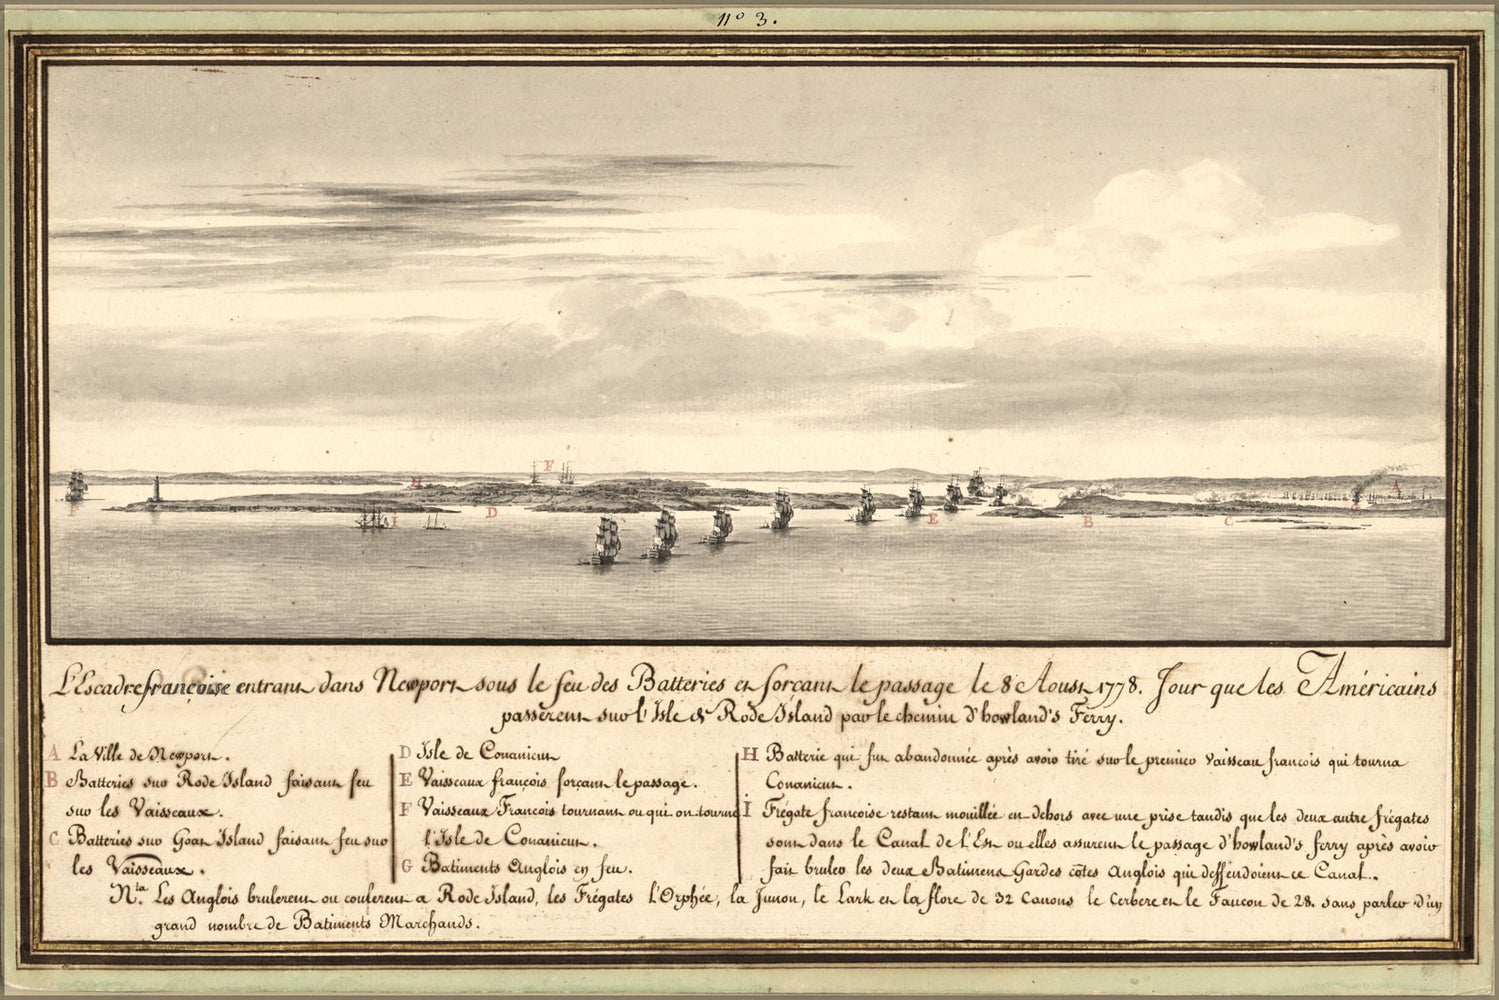 nº 3.
F
H
A
F
I
D
E
B
C
G
L'Escadre françoise entrant dans Newport sous le feu des Batteries et forçant le passage le 8 Aoust 1778. Jour que les Américains
passèrent sur l'Isle de Rode Island par le chemin d'howland's Ferry.
A La Ville de Newport.
B Batteries sur Rode Island faisant feu
sur les Vaisseaux.
C Batteries sur Goat Island faisant feu sur
les Vaisseaux.
D Isle de Conanicut
E Vaisseaux françois forçant le passage.
F Vaisseaux François tournant ou qui ont tourné
l'Isle de Conanicut.
G Batiments Anglois en feu.
H Batterie qui fut abandonnée après avoir tiré sur le premier vaisseau françois qui tourna
Conanicut.
I Frégate françoise restant mouillée en dehors avec une prise tandis que les deux autre frégates
sont dans le Canal de l'Est ou elles assurent le passage d'howland's ferry après avoir
fait bruler les deux Batimens Gardes côtes Anglois qui deffendoient ce Canal.
Nta. Les Anglois brulerent ou coulerent a Rode Island, les Frégates l'Orphée, la Junon, le Lark et la flore de 32 Canons le Cerbere et le Faucon de 28. sans parler d'un
grand nombre de Batiments Marchands.